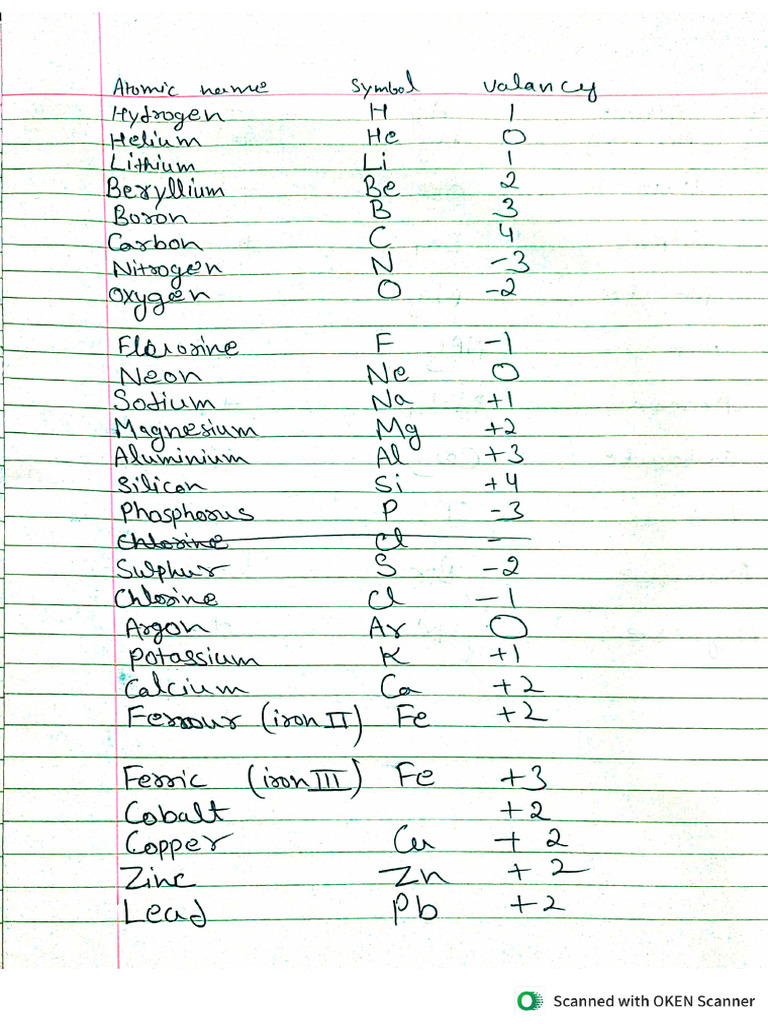 Atomic name Symbol Valancy
Hydrogen H 1
Helium He 0
Lithium Li 1
Beryllium Be 2
Boron B 3
Carbon C 4
Nitrogen N -3
Oxygen O -2
Florine F -1
Neon Ne 0
Sodium Na +1
Magnesium Mg +2
Aluminium Al +3
Silicon Si +4
Phosphorus P -3
Chlorine Cl -
Sulphur S -2
Chlorine Cl -1
Argon Ar 0
Potassium K +1
Calcium Ca +2
Ferrour (iron II) Fe +2
Ferric (iron III) Fe +3
Cobalt +2
Copper Cu + 2
Zinc Zn + 2
Lead Pb +2
Scanned with OKEN Scanner